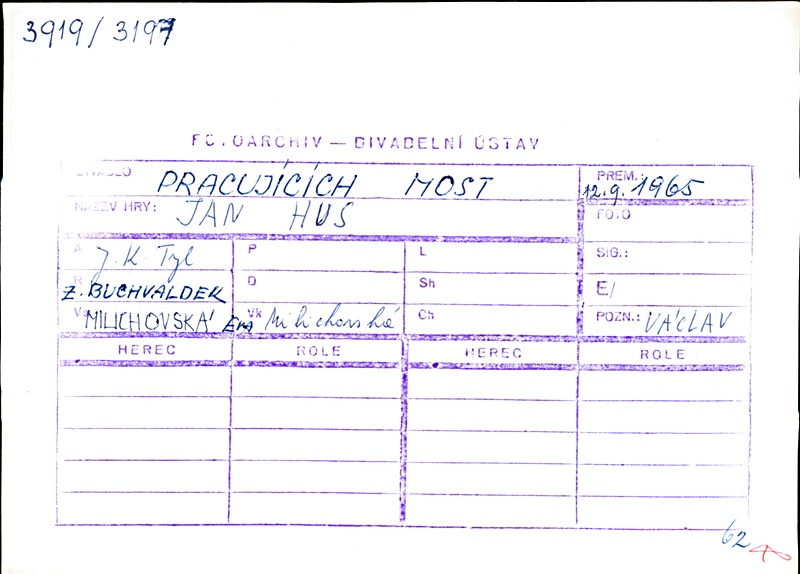 3919/3197
FOTOARCHIV — DIVADELNÍ ÚSTAV
DIVADLO PRACUJÍCÍCH MOST PREM.: 12.9.1965
NÁZEV HRY: JAN HUS FOTO
A J. K. Tyl P L SIG.:
R Z. BUCHVALDEK D Sh E/
V MILICHOVSKÁ EVA Vk Milichovská Ch POZN.: VÁCLAV
HEREC ROLE HEREC ROLE
62